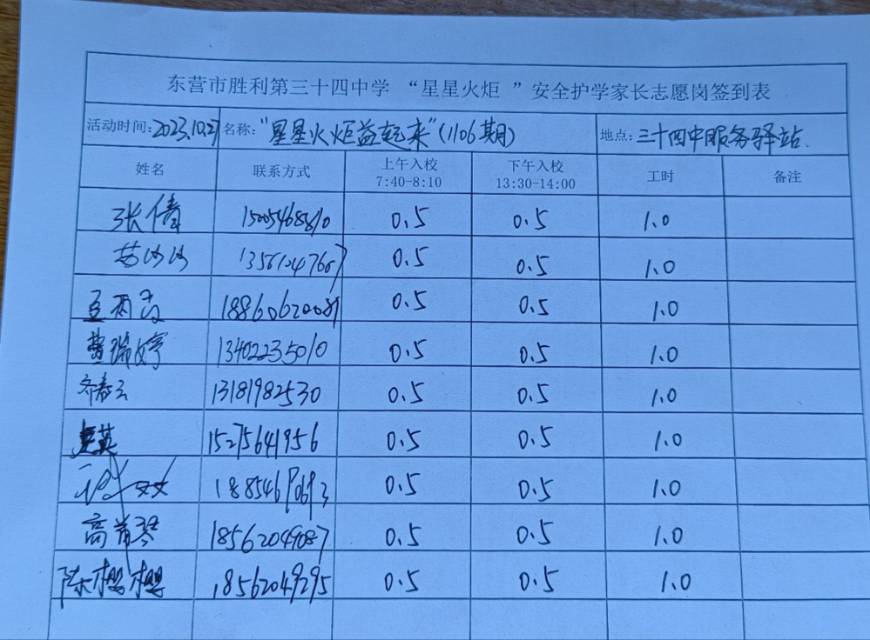 东营市胜利第三十四中学 “星星火炬 ”安全护学家长志愿岗签到表
活动时间:2023.10.27 名称:“星星火炬益起来”(1106期) 地点:三十四中服务驿站.
姓名 联系方式 上午入校 下午入校 工时 备注
7:40-8:10 13:30-14:00
张倩 0.5 0.5 1.0
0.5 0.5 1.0
18860620089 0.5 0.5 1.0
费瑞婷 13402235010 0.5 0.5 1.0
齐春云 13181982530 0.5 0.5 1.0
英 15275641956 0.5 0.5 1.0
0.5 0.5 1.0
高首琴 18562049087 0.5 0.5 1.0
陈樱樱 18562049295 0.5 0.5 1.0